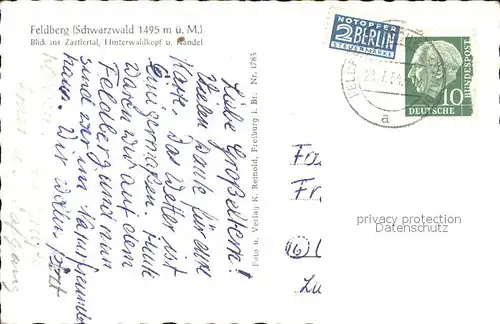 Feldberg (Schwarzwald 1495 m ü. M.)
Blick ins Zastlertal, Hinterwaldkopf u. Kandel
NOTOPFER
2 BERLIN
STEUERMARKE
FELDB
a
10
DEUTSCHE
BUNDESPOST
Liebe Großeltern!
Vielen Dank für eure
Karte. Das Wetter ist
einigermaßen. Heute
waren wir auf dem
Feldberg und nun
sind wir im
haus. Wir wollen
Foto u. Verlag K. Reinold, Freiburg i. Br. Nr. 1785
Fa
Fr.
(16) (
Lu
privacy protection
Datenschutz